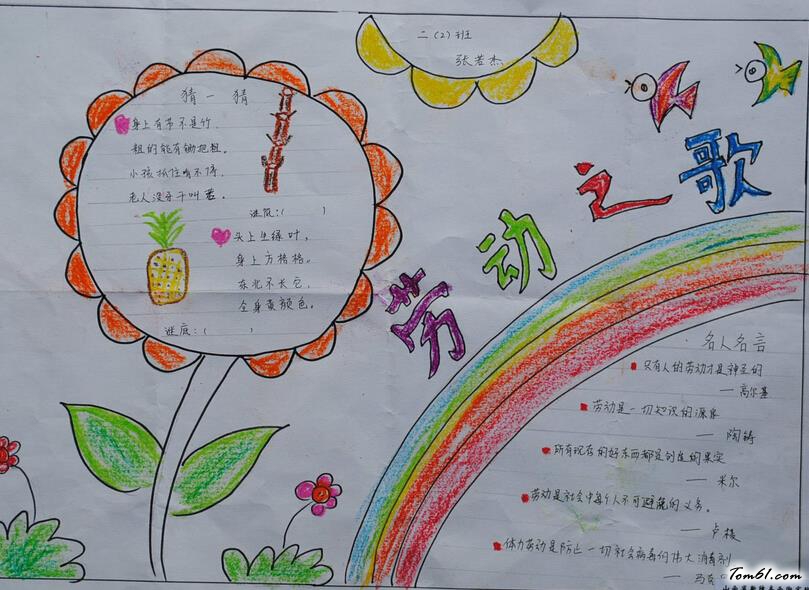 二(2)班
张若杰
劳动之歌
猜一猜
身上有节不是竹,
粗的能有锄把粗。
小孩抓住啃不停,
老人没牙干叫苦。
谜底:( )
头上生绿叶,
身上方格格。
东北不长它,
全身黄颜色。
谜底:( )
名人名言
只有人的劳动才是神圣的
— 高尔基
劳动是一切知识的源泉
— 陶铸
所有现存的好东西都是创造的果实
— 米尔
劳动是社会中每个人不可避免的义务。
— 卢梭
体力劳动是防止一切社会病毒的伟大消毒剂
— 马克
Tom61.com